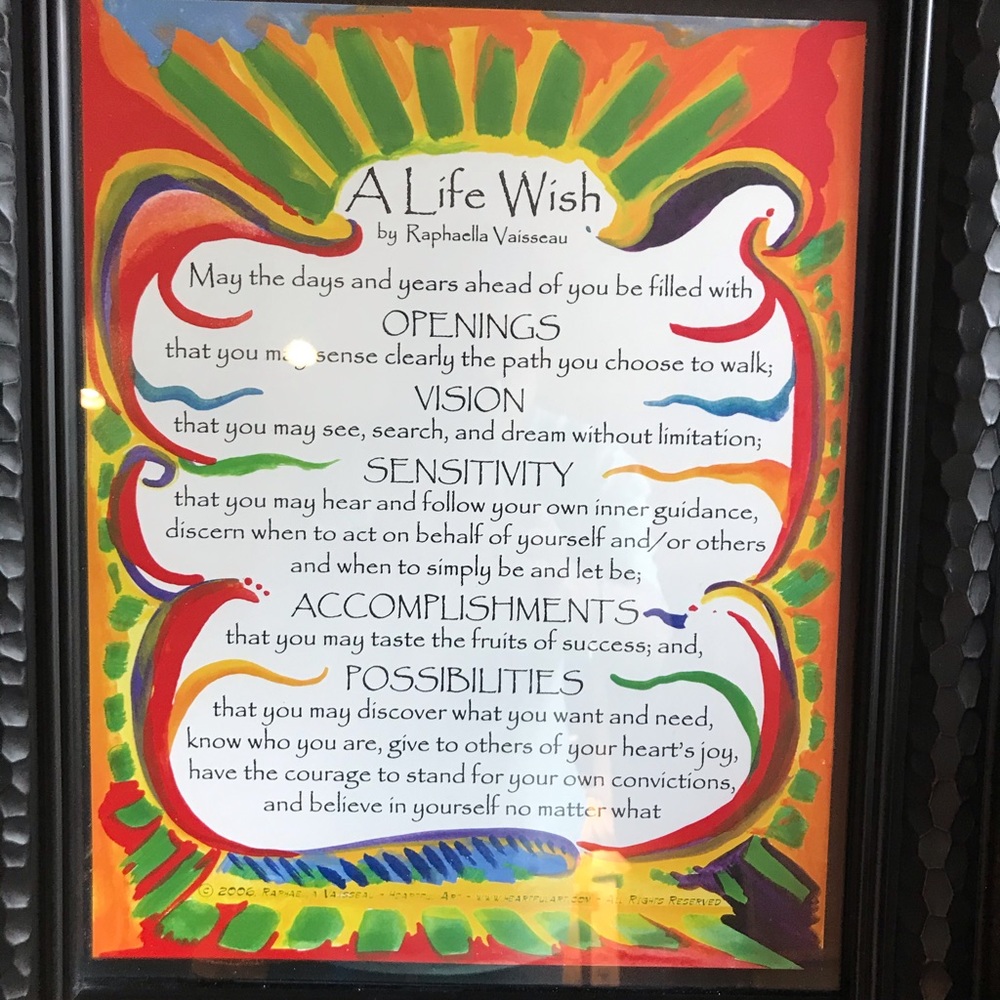 A Life Wish
by Raphaella Vaisseau
May the days and years ahead of you be filled with
OPENINGS
that you may sense clearly the path you choose to walk;
VISION
that you may see, search, and dream without limitation;
SENSITIVITY
that you may hear and follow your own inner guidance,
discern when to act on behalf of yourself and/or others
and when to simply be and let be;
ACCOMPLISHMENTS
that you may taste the fruits of success; and,
POSSIBILITIES
that you may discover what you want and need,
know who you are, give to others of your heart's joy,
have the courage to stand for your own convictions,
and believe in yourself no matter what
© 2006 Raphaella Vaisseau • Heartful Art • www.heartfulart.com • All Rights Reserved